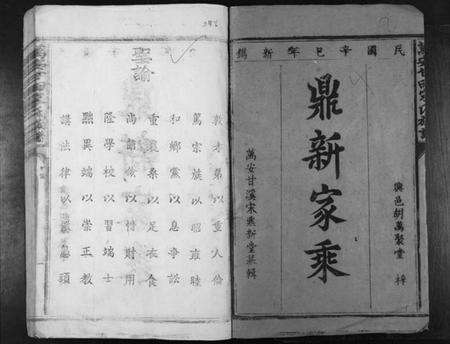 民國辛巳年新鐫
興邑胡萬聚堂梓
鼎新家乘
萬安甘溪宋鼎新堂
聖諭
敦孝弟以重人倫
篤宗族以昭雍睦
和鄉黨以息爭訟
重農桑以足衣食
尚節儉以惜財用
隆學校以端士習
黜異端以崇正
講法律以